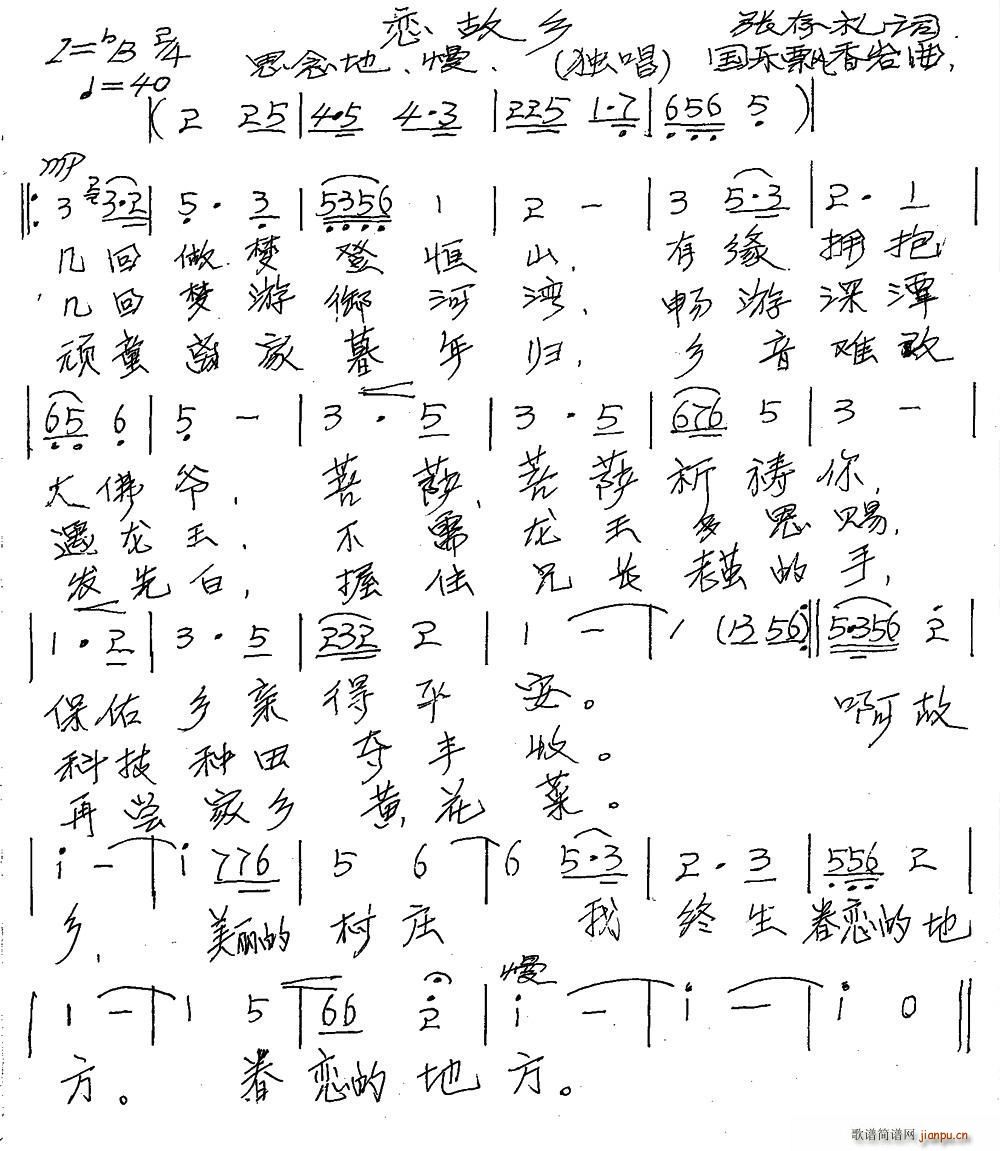 恋故乡
1=ᵇB 2/4 思念地、慢、 (独唱) 张存礼词
♩=40 国乐飘香岩曲
( 2 25 | 4·5 4·3 | 225 1·7 | 656 5 )
mp
3 3·2 | 5·3 | 5356 1 | 2 - | 3 5·3 | 2·1 |
几回做梦登恒山, 有缘拥抱
几回梦游御河湾, 畅游深潭
顽童离家暮年归, 乡音难改
65 6 | 5 - | 3·5 | 3·5 | 676 5 | 3 - |
大佛爷, 菩萨,菩萨祈祷你,
遇龙王, 不需龙王多恩赐,
发先白, 握住兄长老茧的手,
1·2 | 3·5 | 232 2 | 1 - | 1 (13 56) | 5·356 2 |
保佑乡亲得平安。 啊故
科技种田夺丰收。
再尝家乡黄花菜。
i - | i 776 | 5 6 | 6 5·3 | 2·3 | 556 2 |
乡, 美丽的村庄 我终生眷恋的地
慢
1 - | 1 5 | 66 2 | i - | i - | i 0 ‖
方。 眷恋的地方。
歌谱简谱网 jianpu.cn